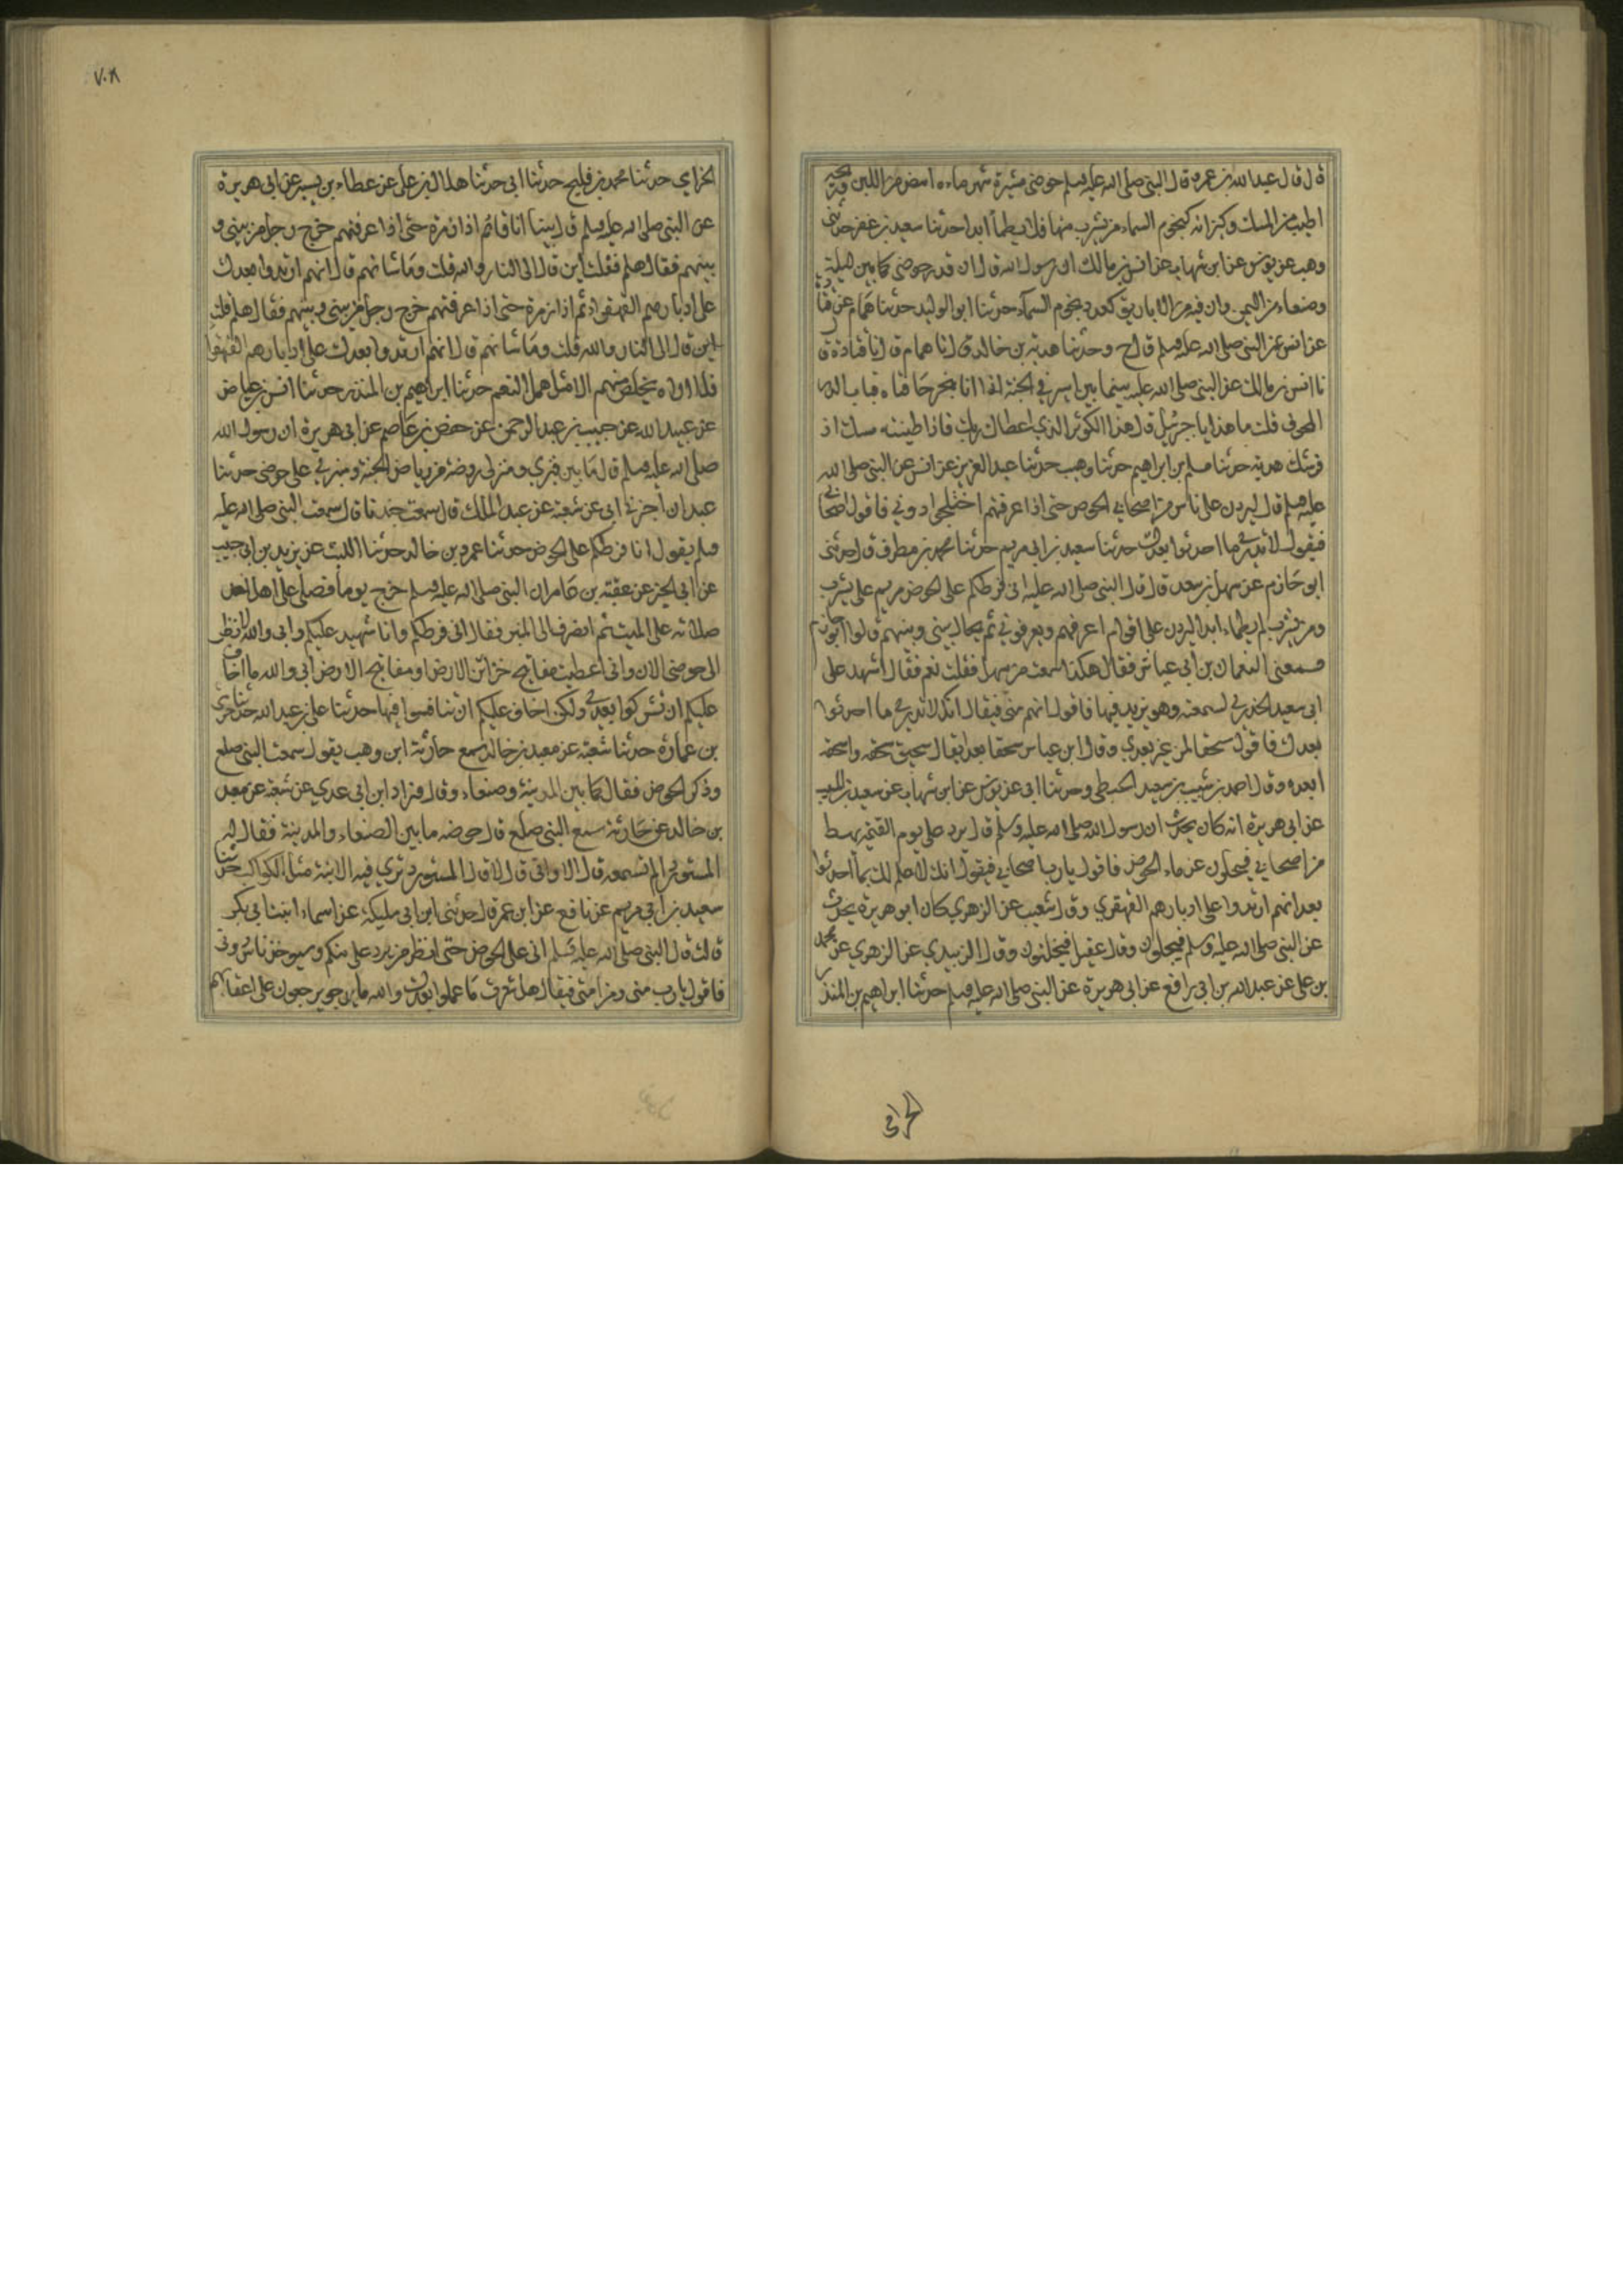 قال قال عبدالله بن عمرو قال النبى صلى الله عليه وسلم حوضى مسيرة شهر ماءه ابيض من اللبن وريحه
اطيب من المسك وكيزانه كنجوم السماء من يشرب منها فلا يظمأ ابدا حدثنا سعيد بن عفير حدثنى
وهب عن يونس عن ابن شهاب عن انس بن مالك ان رسول الله قال ان قدر حوضى كما بين ايلة
وصنعاء من اليمن وان فيه من الاباريق كعدد نجوم السماء حدثنا ابو الوليد حدثنا همام عن قتا
عن انس عن النبى صلى الله عليه وسلم قال ح وحدثنا هدبة بن خالد قال نا همام قال نا قتادة قال
نا انس بن مالك عن النبى صلى الله عليه بينما بين اسير فى الجنة اذا انا بنهر حافتاه قباب الدر
المجوف قلت ما هذا يا جبرئيل قال هذا الكوثر الذى اعطاك ربك فاذا طينته مسك اذ
فر شك هدبة حدثنا مسلم بن ابراهيم حدثنا وهيب حدثنا عبد العزيز عن انس عن النبى صلى الله
عليه وسلم قال ليردن على ناس من اصحابى الحوض حتى اذا عرفتهم اختلجوا دونى فاقول اصحابى
فيقول لا تدرى ما احدثوا بعدك حدثنا سعيد بن ابى مريم حدثنا محمد بن مطرف قال حدثنى
ابو حازم عن سهل بن سعد قال قال النبى صلى الله عليه انى فرطكم على الحوض من مر على يشرب
ومن يشرب لم يظماء ابدا ليردن على اقوام اعرفهم ويعرفونى ثم يحال بينى وبينهم قال ابو حازم
فسمعنى النعمان بن ابى عياش فقال هكذا سمعت من سهل فقلت نعم فقال اشهد على
ابى سعيد الخدرى لسمعته وهو يزيد فيها فاقول انهم منى فيقال انك لا تدرى ما احدثوا
بعدك فاقول سحقا لمن غير بعدى وقال ابن عباس سحقا بعدا يقال سحيق سحقه واسحقه
ابعده وقال احمد بن شبيب بن سعيد الحبطى وحدثنا ابى عن يونس عن ابن شهاب عن سعيد بن المسيب
عن ابى هريرة انه كان يحدث ان رسول الله صلى الله عليه وسلم قال يرد على يوم القيمة رهط
من اصحابى فيحلون عن ماء الحوض فاقول يا رب اصحابى فيقول انك لا علم لك بما احدثوا
بعد انهم ارتدوا على ادبارهم القهقرى وقال شعيب عن الزهرى كان ابو هريرة يحدث
عن النبى صلى الله عليه وسلم فيجلون وقال عقيل فيحلئون وقال الزبيدى عن الزهرى عن محمد
بن على عن عبدالله بن ابى رافع عن ابى هريرة عن النبى صلى الله عليه وسلم حدثنا ابراهيم بن المنذر
الحزامى
٧٠٨
الحزامى حدثنا محمد بن فليح حدثنا ابى حدثنا هلال بن على عن عطاء بن يسير عن ابى هريرة
عن النبى صلى الله عليه وسلم قال بينا انا قائم اذا زمرة حتى اذا عرفتهم خرج رجل من بينى و
بينهم فقال هلم فقلت اين قال الى النار والله قلت وما شانهم قال انهم ارتدوا بعدك
على ادبارهم القهقرى ثم اذا زمرة حتى اذا عرفتهم خرج رجل من بينى وبينهم فقال هلم قلت
اين قال الى النار والله قلت وما شانهم قال انهم ارتدوا بعدك على ادبارهم القهقرى
فلا اراه يخلص منهم الا مثل همل النعم حدثنا ابراهيم بن المنذر حدثنا انس بن عياض
عن عبيد الله عن خبيب بن عبد الرحمن عن حفص بن عاصم عن ابى هريرة ان رسول الله
صلى الله عليه وسلم قال ما بين قبرى ومنزلى روضة من رياض الجنة ومنبرى على حوضى حدثنا
عبدان اخبرنى ابى عن شعبة عن عبد الملك قال سمعت جندبا قال سمعت النبى صلى الله عليه
وسلم يقول انا فرطكم على الحوض حدثنا عمرو بن خالد حدثنا الليث عن يزيد بن ابى حبيب
عن ابى الخير عن عقبة بن عامر ان النبى صلى الله عليه وسلم خرج يوما فصلى على اهل احد
صلاته على الميت ثم انصرف الى المنبر فقال انى فرطكم وانا شهيد عليكم وانى والله لانظر
الى حوضى الان وانى اعطيت مفاتيح خزائن الارض او مفاتيح الارض انى والله ما اخاف
عليكم ان تشركوا بعدى ولكن اخاف عليكم ان تنافسوا فيها حدثنا على بن عبد الله حدثنا حرمى
بن عمارة حدثنا شعبة عن معبد بن خالد سمع حارثة ابن وهب يقول سمعت النبى صلعم
وذكر الحوض فقال كما بين المدينة وصنعاء وقال فزاد ابن ابى عدى عن شعبة عن معبد
بن خالد عن حارثة سمع النبى صلعم قال حوضه ما بين الصنعاء والمدينة فقال له
المستورد الم تسمعه قال الاوانى قال لا قال المستورد ترى فيه الانية مثل الكواكب حدثنا
سعيد بن ابى مريم عن نافع عن ابن عمر قال حدثنى ابن ابى مليكة عن اسماء ابنت ابى بكر
قالت قال النبى صلى الله عليه وسلم انى على الحوض حتى انظر من يرد على منكم وسيوخذ ناس دونى
فاقول يا رب منى ومن امتى فيقال هل شعرت ما عملوا بعدك والله ما برحوا يرجعون على اعقابهم